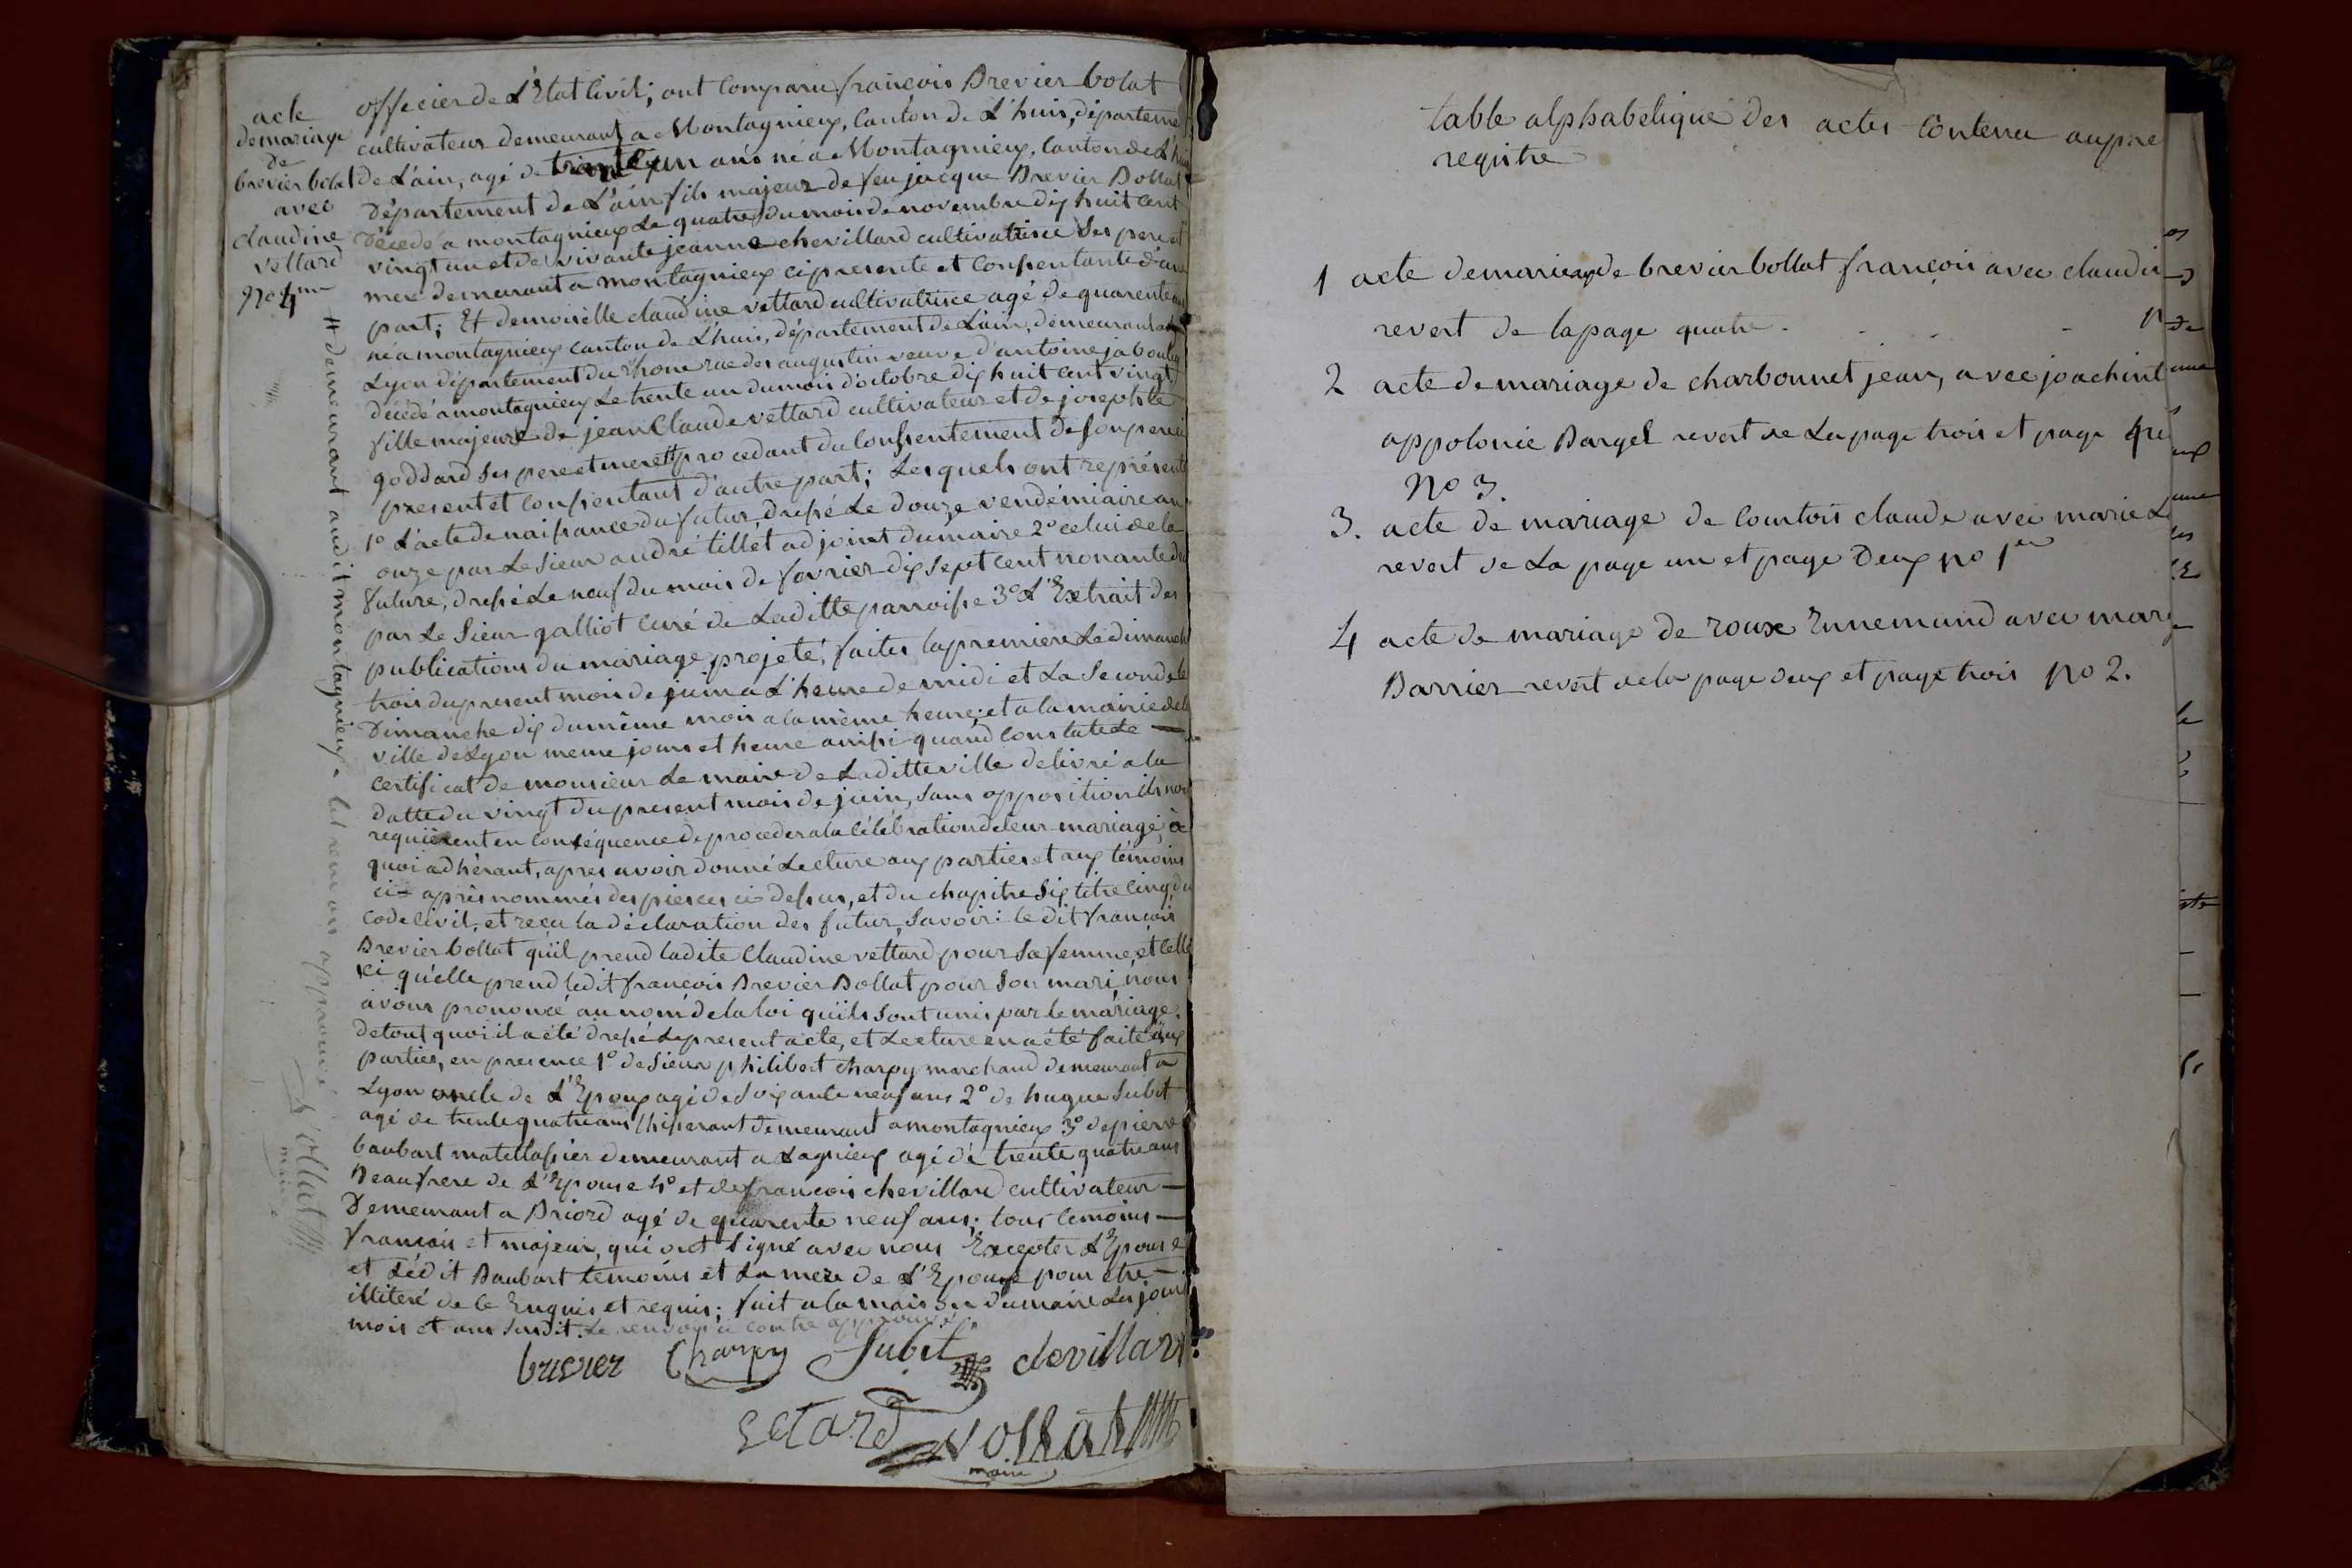 acte
de mariage
de
brevier bolat
avec
claudine
vettard
No 4me
officier de L'Etat Civil; ont Comparu françois Brevier bolat
cultivateur demeurant a Montagnieux, Canton de L'huis, départeme
de L'ain, agé de trente un ans né a Montagnieux, Canton de L'huis
Département de L'ain fils majeur de feu jacque Brevier Bollat
Décedé a montagnieux Le quatre du mois de novembre dix huit cent
vingt un et de vivante jeanne chevillard cultivatrice Ses pere et
mere demeurant a montagnieux ci presente et Consentante d'une
part; Et demoiselle claudine vettard cultivatrice agé de quarente ans
né a montagnieux canton de L'huis, département de L'ain, demeurant a
Lyon département du Rhone rue des augustin veuve d'antoine jaboulay
décédé a montagnieux Le trente un du mois d'octobre dix huit cent vingt
fille majeure de jean Claude vettard cultivateur et de josephte
goddard Ses pere et mere # procedant du Consentement de son pere ci
present et Consentant d'autre part; Lesquels ont représenté
1º L'acte de naissance du futur, dressé Le douze vendémiaire an
onze par Le Sieur andré tillet adjoint du maire 2º celui de la
future, dressé Le neuf du mois de favrier dix Sept cent nonante deux
par Le Sieur galliot Curé de Laditte parroisse 3º L'Extrait des
publications du mariage projeté, faites la premiere Le dimanche
trois du present mois de juin a L'heure de midi et La Seconde le
Dimanche dix du même mois a la même heure; et a la mairie de la
ville de Lyon meme jours et heure ainssi quand Constate Le —
Certificat de monsieur Le maire de Laditte ville delivré a la
datte du vingt du present mois de juin, Sans opposition ils nous
requièrent en Conséquence de proceder a la Célébration de leur mariage, à
quoi adhérant, apres avoir donné Lecture aux parties et aux témoins
ci-aprés nommés des pieces ci dessus, et du chapitre Six titre Cinq du
Code Civil, et reçu la déclaration des futur, Savoir: le dit françois
Brevier bollat qu'il prend ladite Claudine vettard pour Sa femme, et Celle
ci qu'elle prend ledit françois Brevier Bollat pour Son mari, nous
avons prononcé au nom de la loi qu'ils Sont unis par le mariage.
de tout quoi il a été dressé Le present acte, et Lecture en a été faite aux
parties, en presence 1º de Sieur philibert charpy marchand demeurant a
Lyon oncle de L'Epoux agé de Soixante neuf ans 2º de hugue Subit
agé de trente quatre ans thisserant demeurant a montagnieux 3º de pierre
baubart matellassier demeurant a Lagnieux agé de trente quatre ans
Beaufrere de L'Epouse 4º et de françois chevillard cultivateur —
Demeurant a Briord agé de quarente neuf ans; tous temoins —
françois et majeur, qui ont Signé avec nous Excepter L'Epouse
et Lédit Baubart témoins et La mere de L'Epoux pour etre —
illiteré de le Enquis et requis; fait a la maison du maire Les jour
mois et ans Susdit. Le renvoi ci contre approuvé.
# demeurant audit montagnieux. Le renvoi approuvé
Vollat
maire
brevier Charpy Subit chevillard
vetard Vollat
maire
table alphabetique des actes Contenu au pre
registre
1 acte de mariage de brevier bollat françois avec claudi
revert de la page quatre.
2 acte de mariage de charbonnet jean, avec joachint
appolonie Bargel revert de La page trois et page
No 3.
3. acte de mariage de Courtois claude avec marie
revert de La page un et page Deux no 1er
4 acte de mariage de roux Ennemund avec marg
Barrier revert de la page deux et page trois no 2.